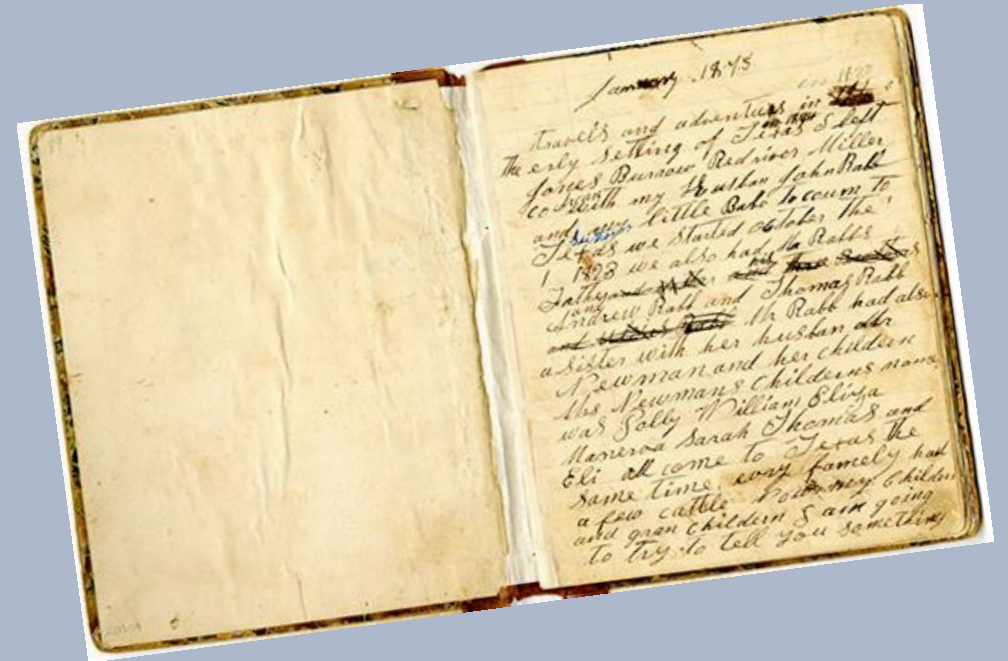 January 1875
travels and adventurs in
the erly Setling of Texas I left
Jones Burrow Redriver Miller
co with my Husban John Rabb
and my little Babe to coum to
Texas we Started october the
1 1823 we also had Rabbs
Father
Andrew Rabb and Thomas Rabb
Mr Rabb had also
a Sister with her husban Mr
Newman and her Childern
Mrs Newmans Childerns name
was Polly William Eliza
Manerva Sarah Thomas and
Eli all come to Texas the
Same time evry famely had
a few cattle Now my Childern
and gran Childern I am going
to try to tell you something